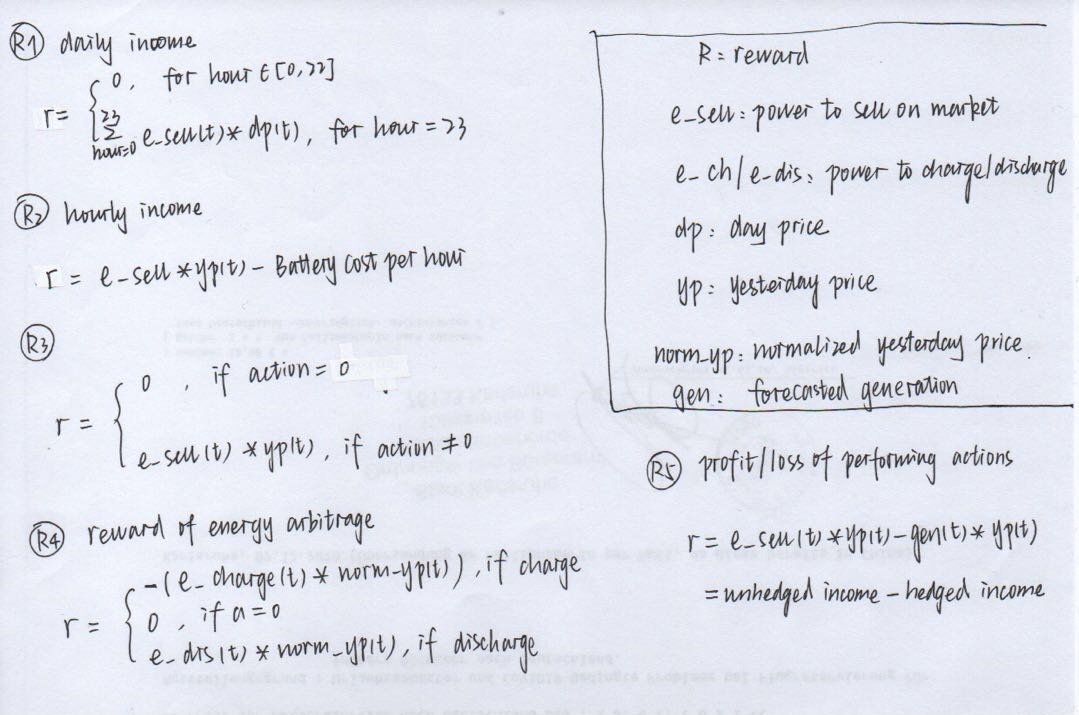 R1 daily income
r = { 0, for hour ∈ [0,22]
∑_{hour=0}^{23} e_sell(t)*dp(t), for hour = 23
R2 hourly income
r = e_sell*yp(t) - Battery cost per hour
R3
r = { 0, if action = 0
e_sell(t)*yp(t), if action ≠ 0
R4 reward of energy arbitrage
r = { -(e_charge(t)*norm_yp(t)), if charge
0, if a=0
e_dis(t)*norm_yp(t), if discharge
R: reward
e_sell: power to sell on market
e_ch/e_dis: power to charge/discharge
dp: day price
yp: yesterday price
norm_yp: normalized yesterday price.
gen: forecasted generation
R5 profit/loss of performing actions
r = e_sell(t)*yp(t)-gen(t)*yp(t)
= unhedged income - hedged income